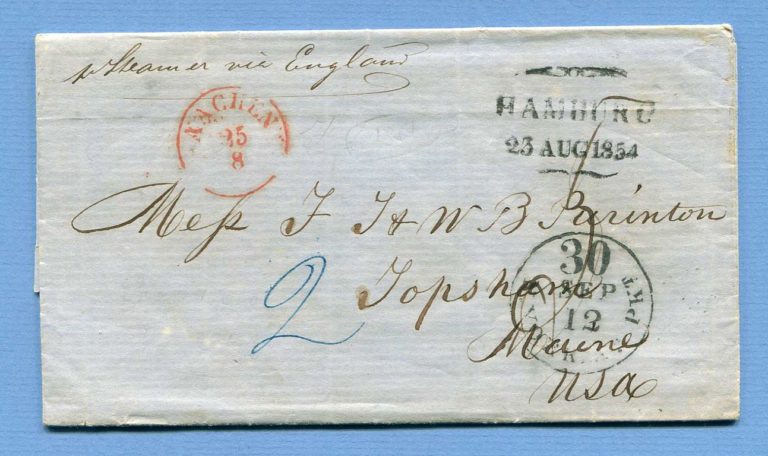 p Steamer via England
AACHEN
25
8
HAMBURG
23 AUG 1854
Mess F J & W B Purinton
2
Topsham
Maine
USa
30
SEP
12
PKT